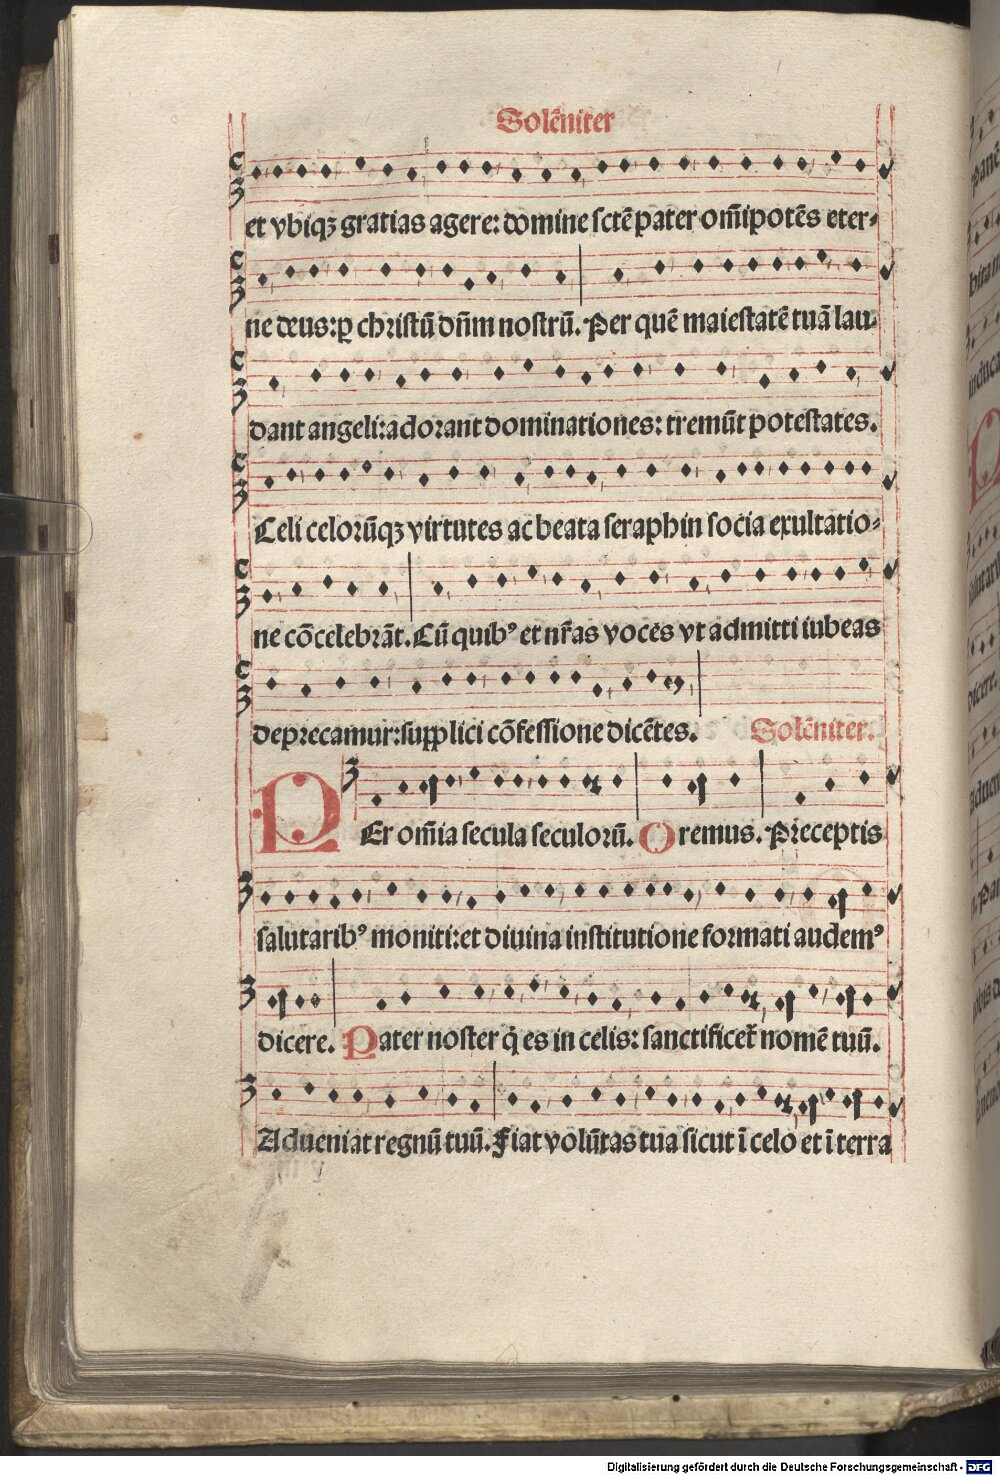 Solēniter
et vbiqꝫ gratias agere: domine sctē pater om̄ipotēs eter⸗
ne deus: ꝑ christū dn̄m nostrū. Per quē maiestatē tuā lau⸗
dant angeli: adorant dominationes: tremūt potestates.
Celi celorūqꝫ virtutes ac beata seraphin socia exultatio⸗
ne cōcelebrāt. Cū quibꝰ et nr̄as voces vt admitti iubeas
deprecamur: supplici cōfessione dicētes. Solēniter.
PEr om̄ia secula seculorū. Oremus. Preceptis
salutaribꝰ moniti: et diuina institutione formati audemꝰ
dicere. Pater noster q̇ es in celis: sanctificet᷑ nomē tuū.
Adueniat regnū tuū. Fiat volūtas tua sicut ī celo et ī terra
Digitalisierung gefördert durch die Deutsche Forschungsgemeinschaft - DFG